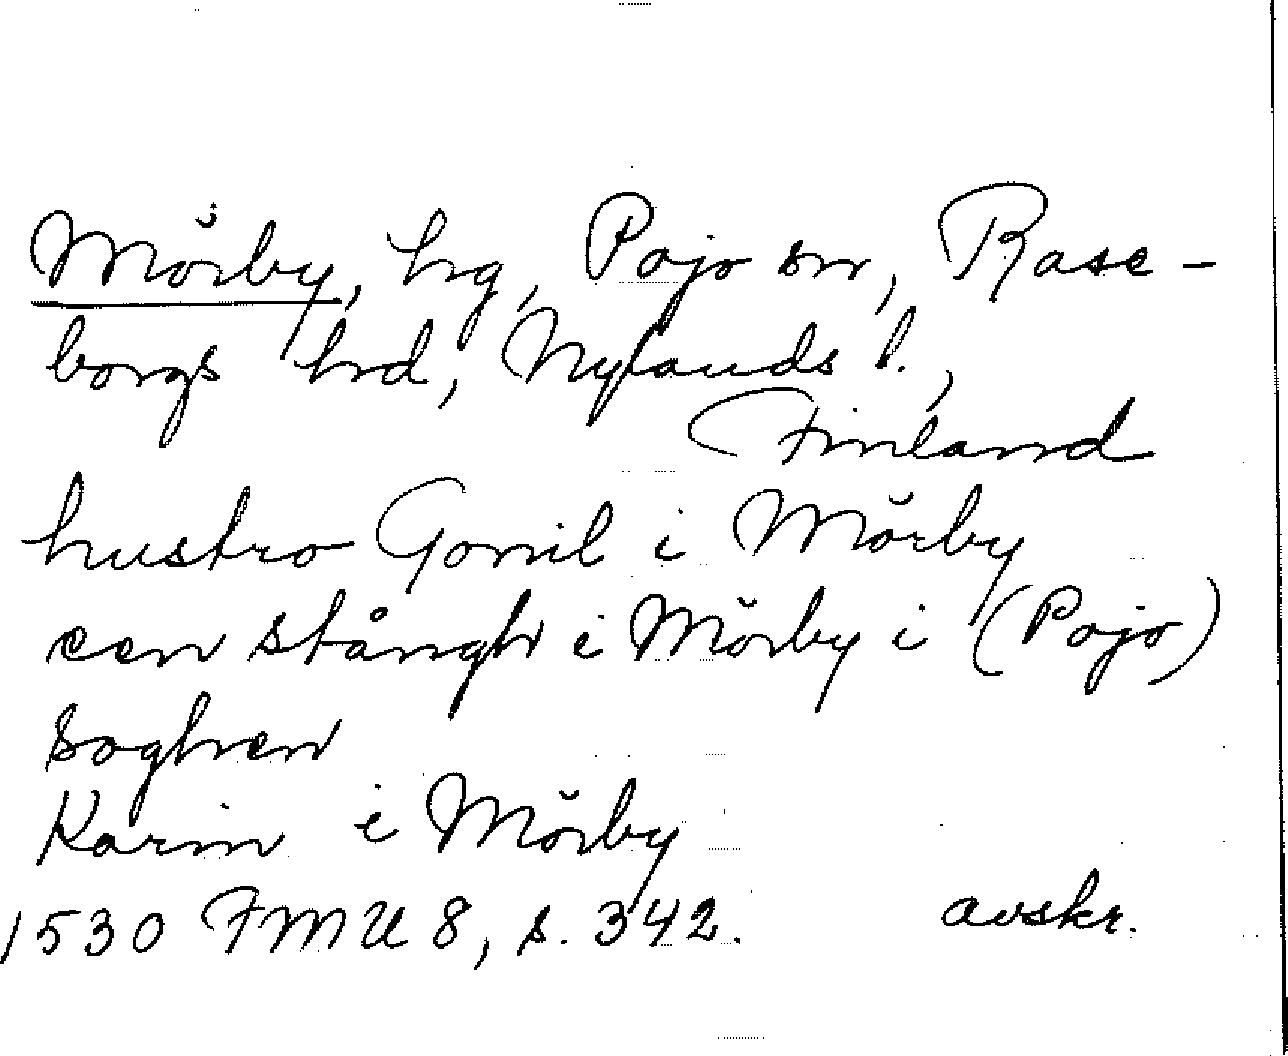 Mörby, hg, Pojo sn, Rase-
borgs hrd, Nylands l.,
Finland
hustro Gonil i Mörby
een stångh i Mörby i (Pojo)
soghen
Karin i Mörby
1530 FMU 8, s. 342. avskr.